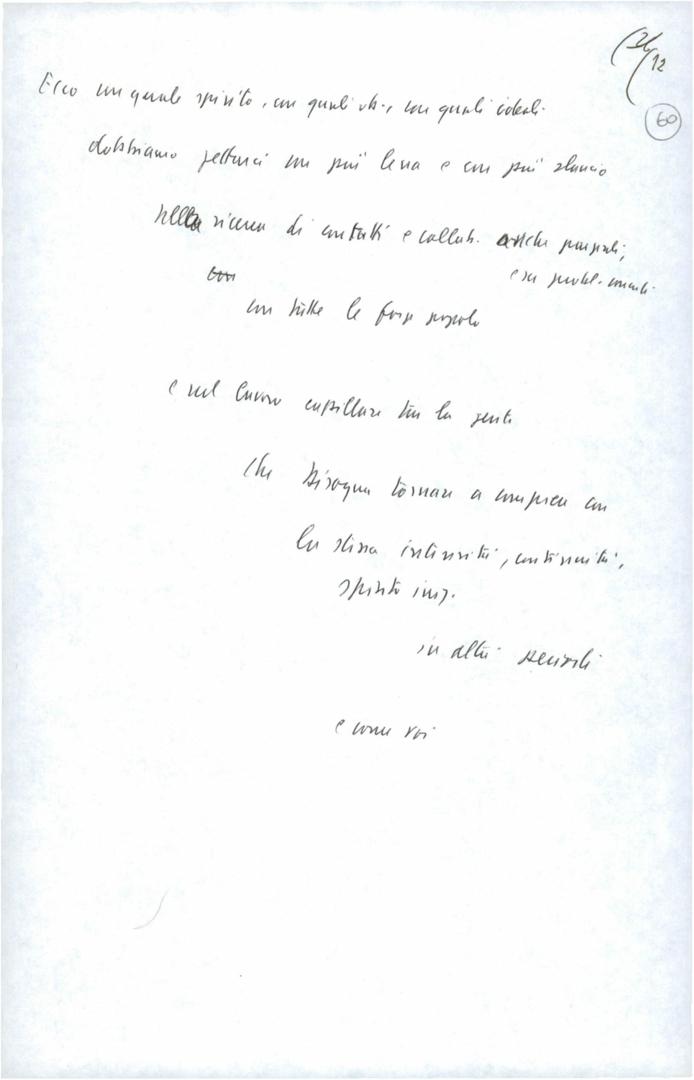 24/12
60
Ecco con quale spirito, con quali ob., con quali ideali
dobbiamo gettarci con più lena e con più slancio
nella ricerca di contatti e collab. anche
e su probl.
con
con tutte le forze popolo
e nel lavoro capillare tra la gente
che bisogna tornare a compiere con
la stessa intensità, continuità,
spirito
in altri decisivi
e come voi